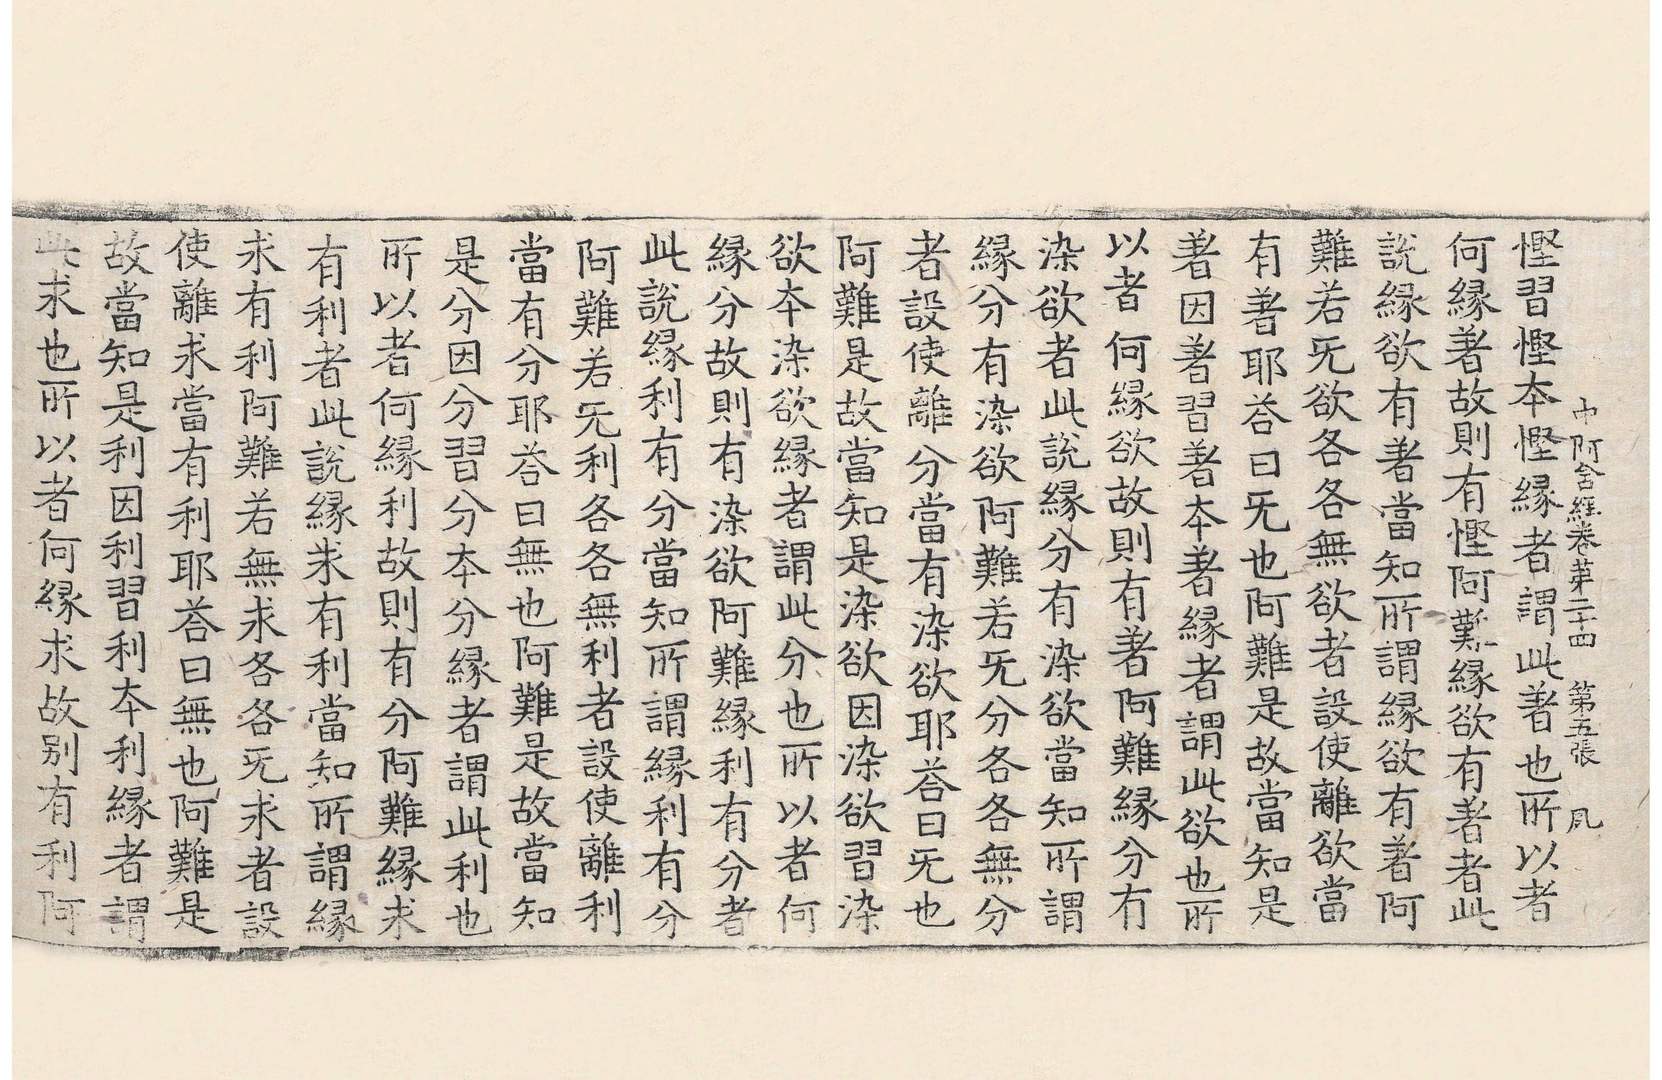 中阿含經卷第二十四 第五張 風
慳習慳本慳縁者謂此著也所以者
何縁著故則有慳阿難縁欲有著者此
說縁欲有著當知所謂縁欲有著阿
難若旡欲各各無欲者設使離欲當
有著耶荅曰旡也阿難是故當知是
著因著習著本著縁者謂此欲也所
以者何縁欲故則有著阿難縁分有
染欲者此說縁分有染欲當知所謂
縁分有染欲阿難若旡分各各無分
者設使離分當有染欲耶荅曰旡也
阿難是故當知是染欲因染欲習染
欲本染欲縁者謂此分也所以者何
縁分故則有染欲阿難縁利有分者
此說縁利有分當知所謂縁利有分
阿難若旡利各各無利者設使離利
當有分耶荅曰無也阿難是故當知
是分因分習分本分縁者謂此利也
所以者何縁利故則有分阿難縁求
有利者此說縁求有利當知所謂縁
求有利阿難若無求各各旡求者設
使離求當有利耶荅曰無也阿難是
故當知是利因利習利本利縁者謂
此求也所以者何縁求故别有利阿